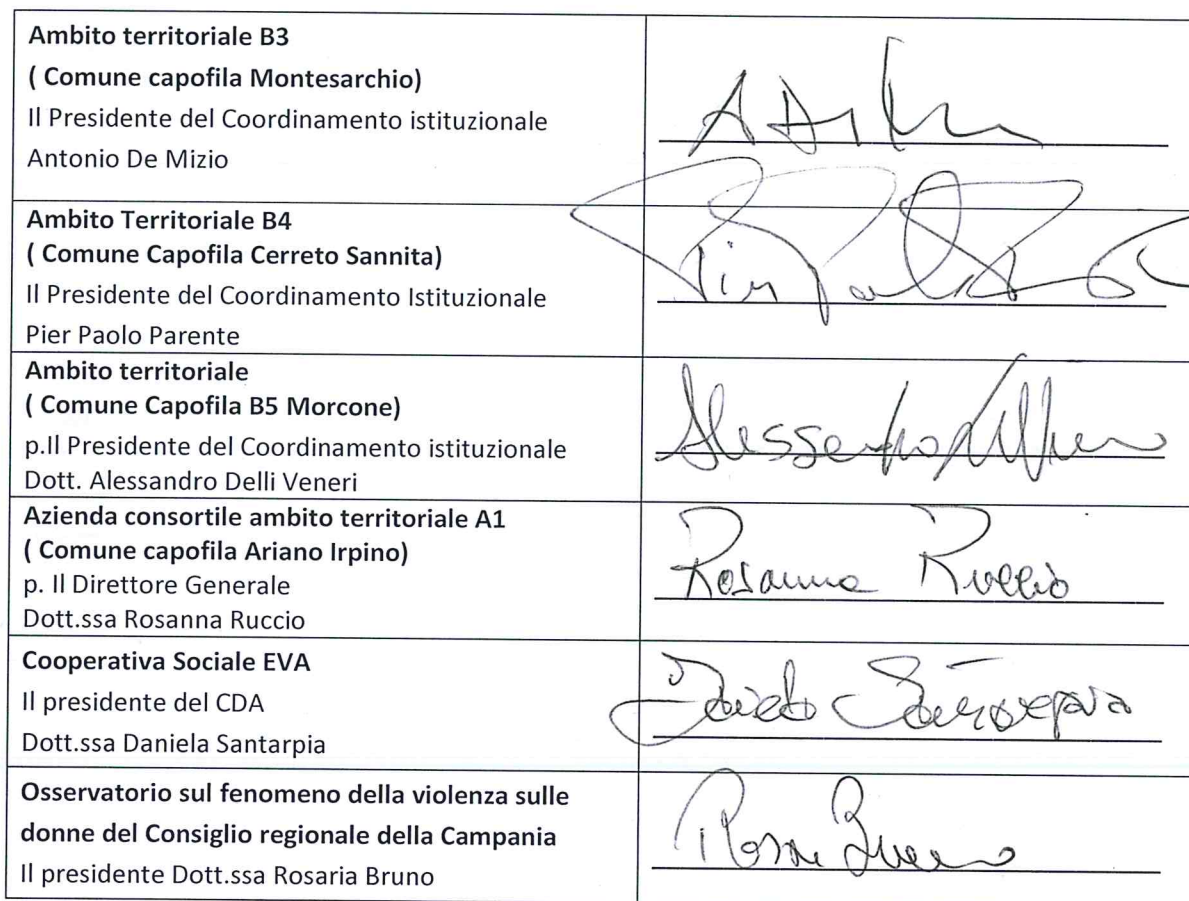 Ambito territoriale B3
( Comune capofila Montesarchio)
Il Presidente del Coordinamento istituzionale
Antonio De Mizio
Ambito Territoriale B4
( Comune Capofila Cerreto Sannita)
Il Presidente del Coordinamento Istituzionale
Pier Paolo Parente
Ambito territoriale
( Comune Capofila B5 Morcone)
p.Il Presidente del Coordinamento istituzionale
Dott. Alessandro Delli Veneri
Azienda consortile ambito territoriale A1
( Comune capofila Ariano Irpino)
p. Il Direttore Generale
Dott.ssa Rosanna Ruccio
Rosanna Ruccio
Cooperativa Sociale EVA
Il presidente del CDA
Dott.ssa Daniela Santarpia
Osservatorio sul fenomeno della violenza sulle
donne del Consiglio regionale della Campania
Il presidente Dott.ssa Rosaria Bruno